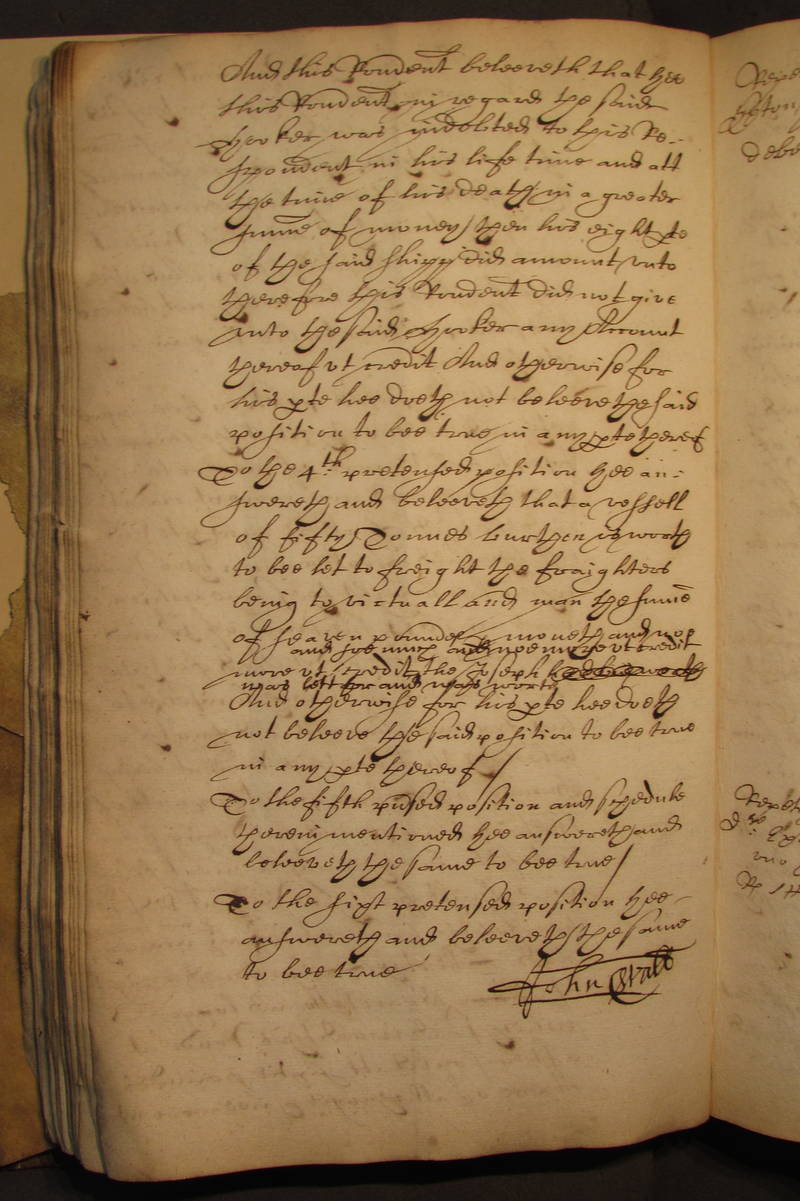 And this Rondent beleeveth that hee
this Rondent in regard the said
Hooker was indebted to this Re-
spondent in his life time and att
the time of his death in a greater
summe of money then his eight pte
of the said shipp did amount vnto
therefore this Rondent did not give
vnto the said Hooker any Account
thereof vt credit And otherwise for
his pte hee doeth not beleeve the said
position to bee true in any pte thereof
To the 4th pretensed position hee an-
swereth and beleeveth that a vessell
of fifty Tonnes burthen is worth
to bee let to freight the fraighters
being to victuall and man the summe
of seaven pounds p moneth and noe
and soe much and noe more vt credit
more vt credit the Joseph
was lett for and was worth
And otherwise for his pte hee doeth
not beleeve the said position to bee true
in any pte thereof /
To the fifth pnsed position and schedule
therein mentioned hee answereth and
beleeveth the same to bee true /
To the sixt pretensed position hee
answereth and beleeveth the same
to bee true
John
Repe
debe